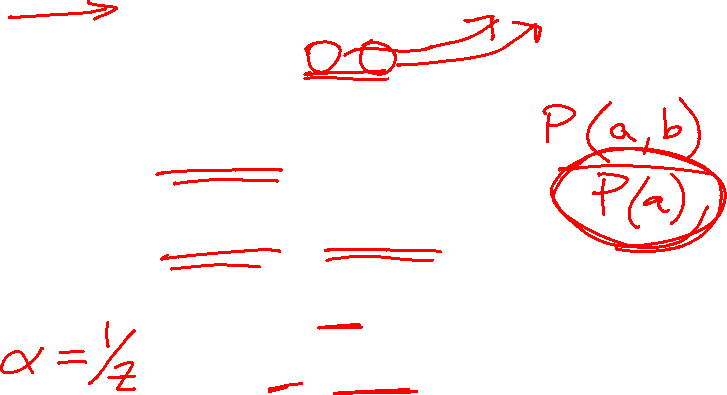 P(a,b)
P(a)
α = 1/z